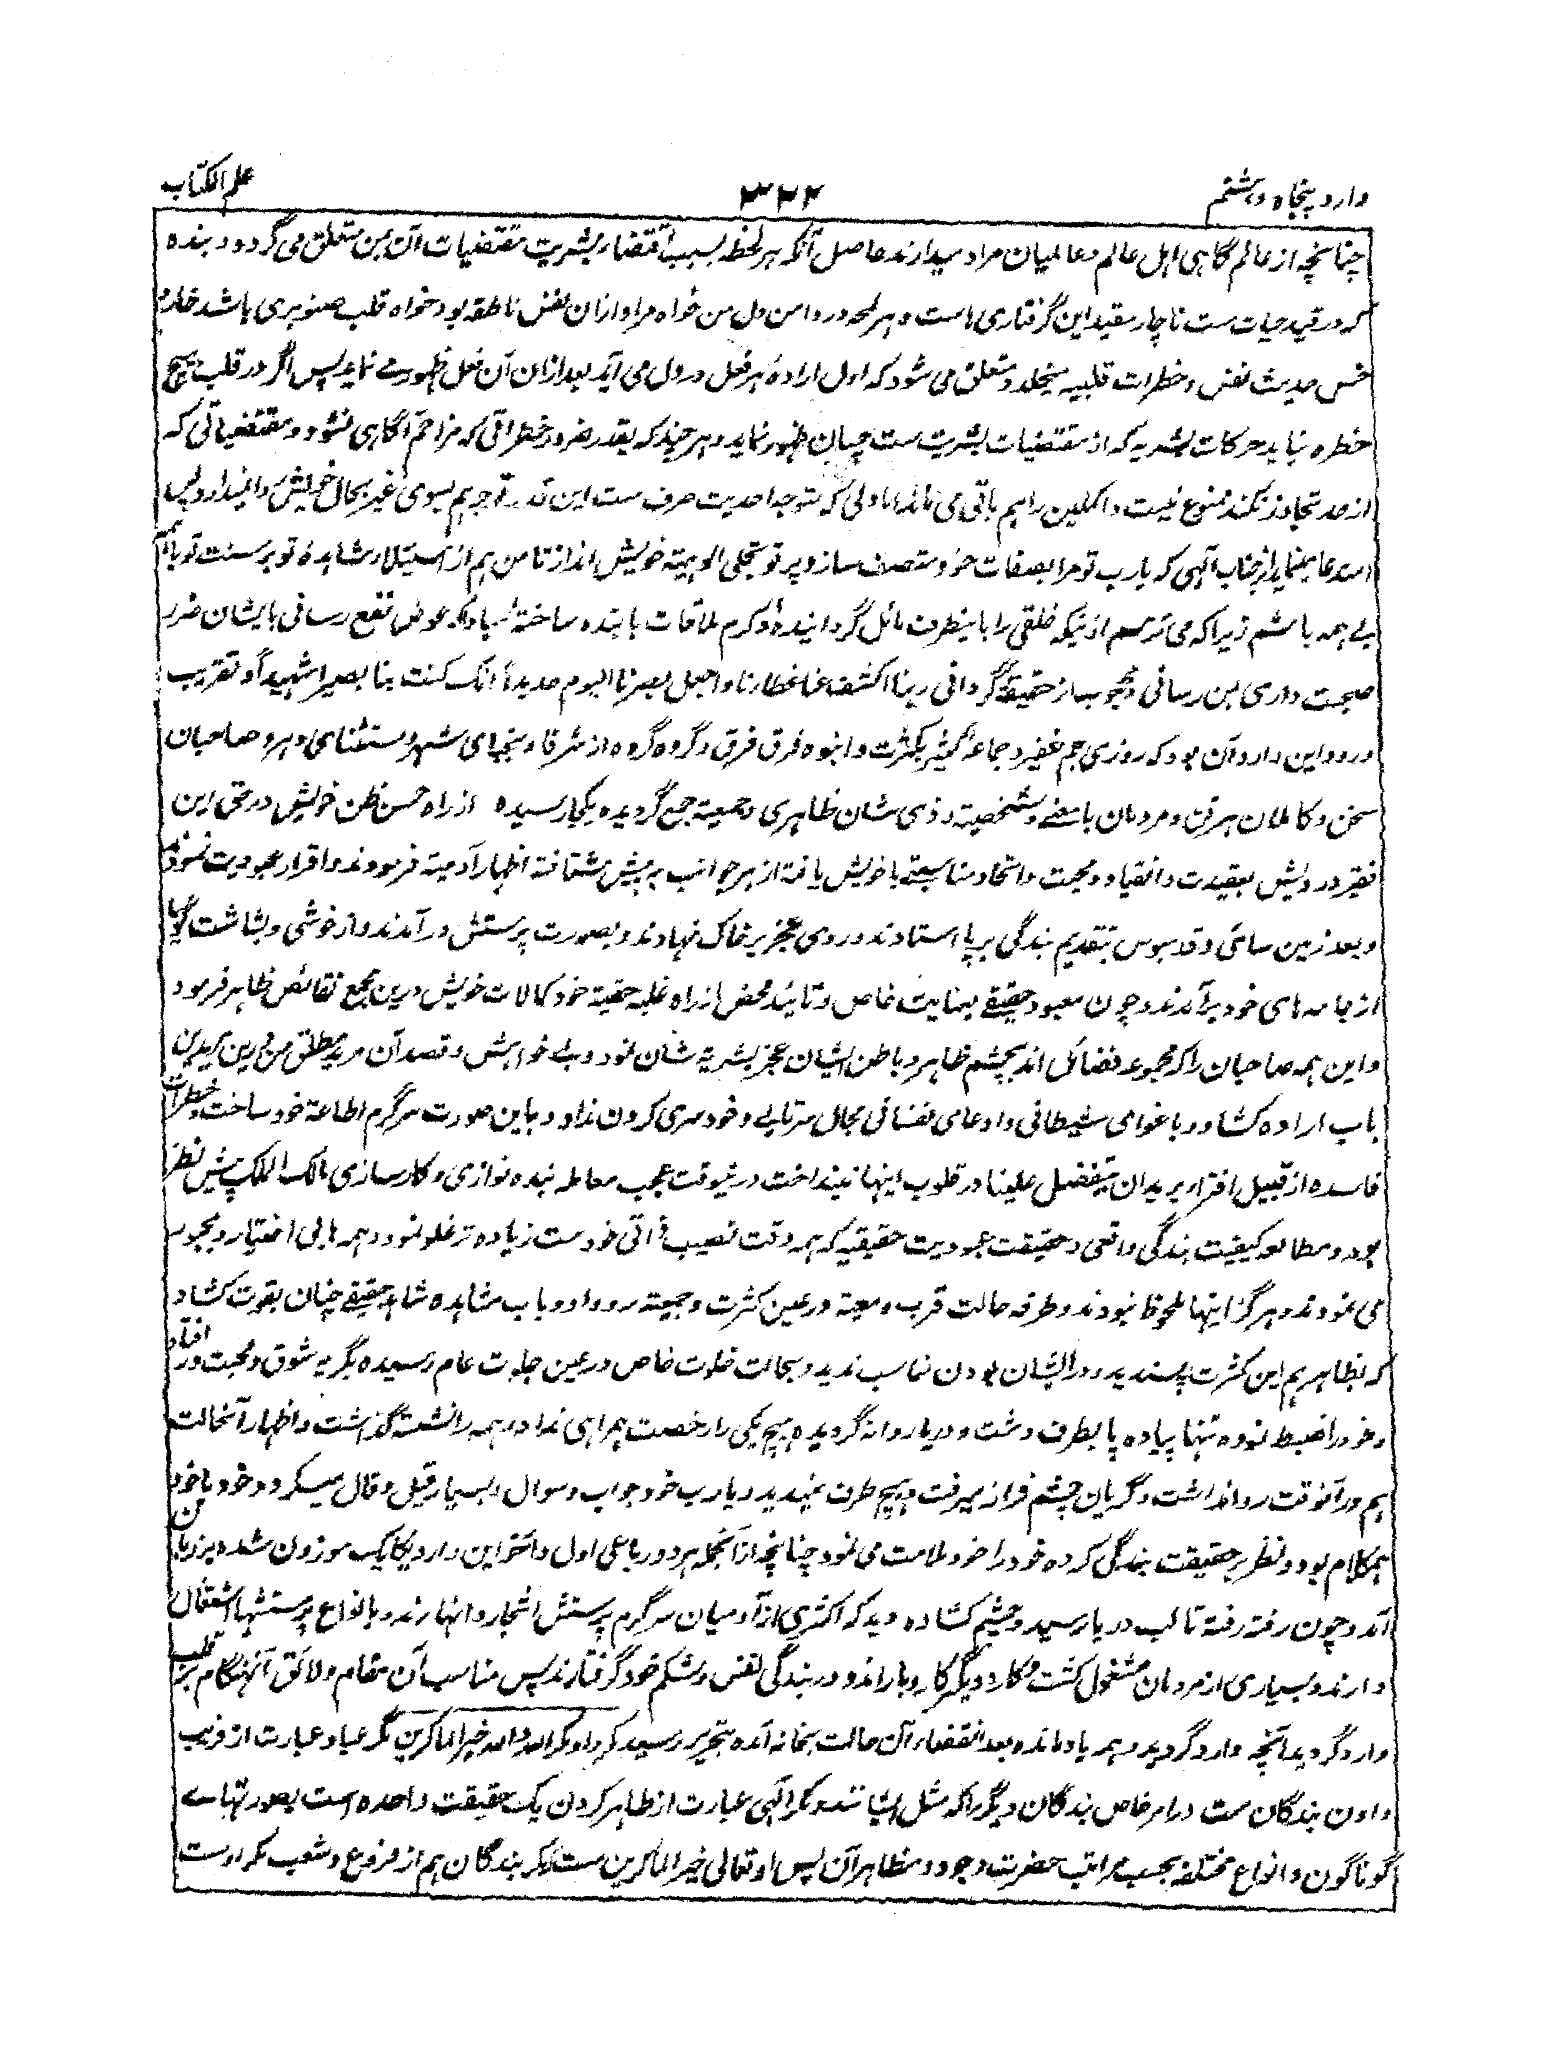 وارد پنجاه و هشتم
۳۲۲
علم الکتاب
چنانچه از عالم گاهی اهل عالم و عالمیان مراد میدارند حاصل آنکه هر لحظه بسبب اقتضاء بشریت مقتضیات آن بمن متعلق می گردد و بنده
که در قید حیات ست ناچار مقید این گرفتاری هاست و هر لمحه در دامن دل من خواه مراد ازان نفس ناطقه بود خواه قلب صنوبری باشد خار و
خس حدیث نفس و خطرات قلبیه میخلد و متعلق می شود که اول ارادهٔ هر فعل در دل می آید بعد ازان آن فعل ظهور می نماید پس اگر در قلب هیچ
خطره نیاید حرکات بشریه که از مقتضیات بشریت ست چسان ظهور نماید و هر چند که بقدر ضرور خطراتی که مزاحم آگاهی نشود و مقتضیاتی که
از حد تجاوز نکند ممنوع نیست و اکملین را هم باقی می ماند اما دلی که متوجه احدیت صرف ست این قدر توجه هم بسوی غیر بحال خویش روا نمیدارد پس
استدعا مینماید از جناب آلهی که یارب تو مرا بصفات خود متصف ساز و پرتو تجلی الوهیته خویش انداز تا من هم از استیلاء مشاهدهٔ تو بر سنت تو با همه
بی همه باشم زیرا که می ترسم از اینکه خلقی را باینطرف مائل گردانیدهٔ و گرم ملاقات با بنده ساختهٔ مبادا که عوض نفع رسانی بایشان ضرر
صحبت داری بمن رسانی و محجوب از حقیقة گردانی ربنا اکشف عنا غطاءنا و اجعل بصرنا الیوم حدیداً انک کنت بنا بصیراً شهیداً و تقریب
ورود این وارد آن بود که روزی جم غفیر و جماعهٔ کثیر بکثرت و انبوه فرق فرق و گروه گروه از شرفاء و نجبای شهر و مستثنای دهر و صاحبان
سخن و کاملان هر فن و مردمان بامعنی و متشخصیته و ذی شان ظاهری و جمعیة جمع گردیده یکبار رسیده از راه حسن ظن خویش در حق این
فقیر درویش بعقیدت و انقیاد و محبت و اتحاد مناسبتی با خویش یافته از هر جوانب به پیش شتافته اظهار آدمیته فرمودند و اقرار عبودیت نمودند
و بعد زمین سائی و قدمبوس بتقدیم بندگی برپا استادند و روی عجز بر خاک نهادند و بصورت پرستش در آمدند و از خوشی و بشاشت گویا
از جامه های خود برآمدند و چون معبود حقیقی بعنایت خاص و تائید محض از راه غلبه حقیة خود کمالات خویش درین مجمع نقائص ظاهر فرمود
و این همه صاحبان را که مجموعه فضائل اند بچشم ظاهر و باطن ایشان عجز بشریه شان نمود و بی خواهش و قصد آن مرید مطلق من درین مریدین
باب اراده کشاد و باغوای شیطانی و ادعای نفسانی مجال سرتابی و خودسری کردن نداد و باین صورت سرگرم اطاعة خود ساخت و خطرات
فاسده از قبیل افتراء یریدان یتفضل علینا در قلوب اینها نینداخت درینوقت عجب معامله بنده نوازی و کارسازی مالک الملک پیش نظر
بود و مطالعه کیفیت بندگی واقعی و حقیقت عبودیت حقیقیه که همه وقت نصیب ذاتی خودست زیاده تر غلو نمود و همه ها بی اختیار و مجبور
می نمودند و هرگز اینها ملحوظ نبودند و طرفه حالت قرب و معیة در عین کثرت و جمعیته رو داد و باب مشاهده شاهد حقیقی چنان بقوت کشاد
که بظاهر هم این کثرت پسندید و در ایشان بودن مناسب ندید و بحالت خلوت خاص در عین جلوت عام رسیده بگریه شوق و محبت در افتاد
و خود را ضبط نموده تنها پیاده پا بطرف دشت و دریا روانه گردیده هیچ یکی را رخصت همراهی نداد و همه را نشسته گذاشت و اظهار آنحالت
هم در آنوقت روا نداشت و گریان چشم فراز میرفت و هیچ طرف نمیدید و یارب خود جواب و سوال و بسیار قیل و قال میکرد و خود باخود
همکلام بود و نظر بر حقیقت بندگی کرده خود را خود ملامت می نمود چنانچه از آنجمله هر دو رباعی اول و آخر این وارد یکایک موزون شده بر زبان
آمد و چون رفته رفته تا لب دریا رسید و چشم کشاده دید که اکثری از آدمیان سرگرم پرستش اشجار و انهارند و بانواع پرستشها اشتغال
دارند و بسیاری از مردمان مشغول کشت و کار و دیگر کاروباراند و در بندگی نفس و شکم خود گرفتارند پس مناسب آن مقام و لائق آن هنگام بر قلب
وارد گردید آنچه وارد گردید و همه یاد مانده بعد انقضاء آن حالت بخانه آمده بتحریر رسید مکروا و مکر الله و الله خیر الماکرین مکر عباد عبارت از فریب
دادن بندگان ست در امر خاص بندگان دیگر را که مثل ایشانند و مکر آلهی عبارت از ظاهر کردن یک حقیقت واحده است بصورتهای
گوناگون و انواع مختلفه بحسب مراتب حضرت وجود و مظاهر آن پس او تعالی خیر الماکرین ست و مکر بندگان هم از فروع و شعب مکر اوست